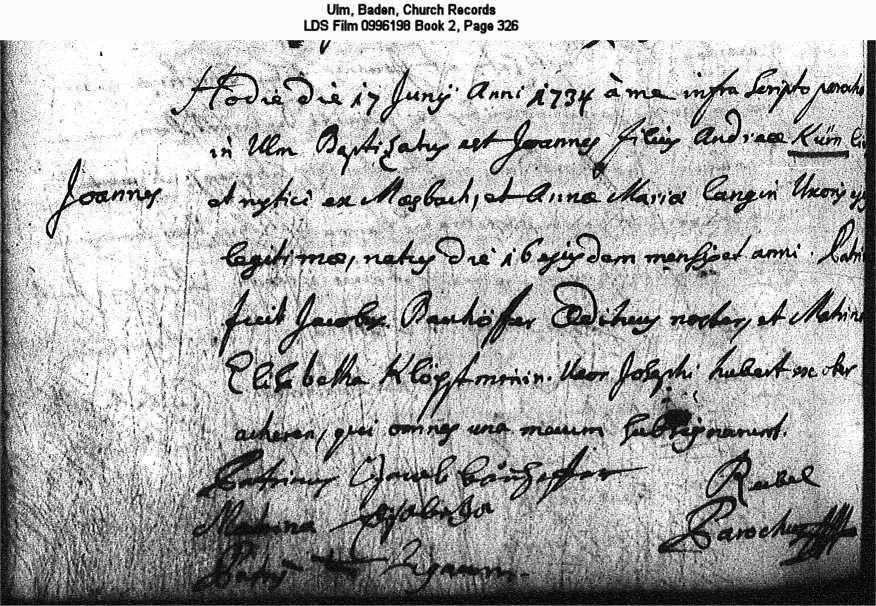 Ulm, Baden, Church Records
LDS Film 0996198 Book 2, Page 326
Hodie die 17 Junÿ Anni 1734 à me infra scripto paroch
in Ulm Baptizatus est Joannes filius Andreae Kürn
Joannes
et ex Mosbach, et Annae Mariae Langin Uxoris
legitimae, natus die 16 ejusdem mensis et anni. Patri
fuit Jacobus Bauhöffer Aedituus noster, et Matrin
Elisabetha uxor Josephi hubert ex ober
acheren, qui omnes una mecum subsignarunt.
Patrinus Jacob
Matrina
Signum
Parochus